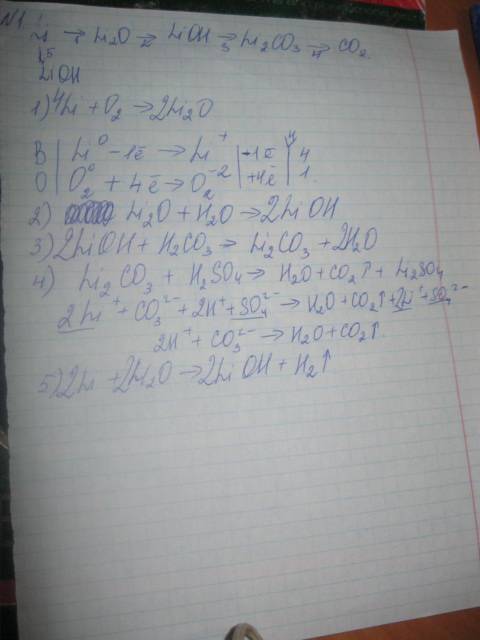 №1.
Li →1 Li₂O →2 LiOH →3 Li₂CO₃ →4 CO₂.
↓5
LiOH
1) 4Li + O₂ → 2Li₂O
В | Li⁰ - 1ē → Li⁺ | -1ē | 4
О | O₂⁰ + 4ē → O₂⁻² | +4ē | 1
2) Li₂O + H₂O → 2LiOH
3) 2LiOH + H₂CO₃ → Li₂CO₃ + 2H₂O
4) Li₂CO₃ + H₂SO₄ → H₂O + CO₂↑ + Li₂SO₄
2Li⁺ + CO₃²⁻ + 2H⁺ + SO₄²⁻ → H₂O + CO₂↑ + 2Li⁺ + SO₄²⁻
2H⁺ + CO₃²⁻ → H₂O + CO₂↑.
5) 2Li + 2H₂O → 2LiOH + H₂↑